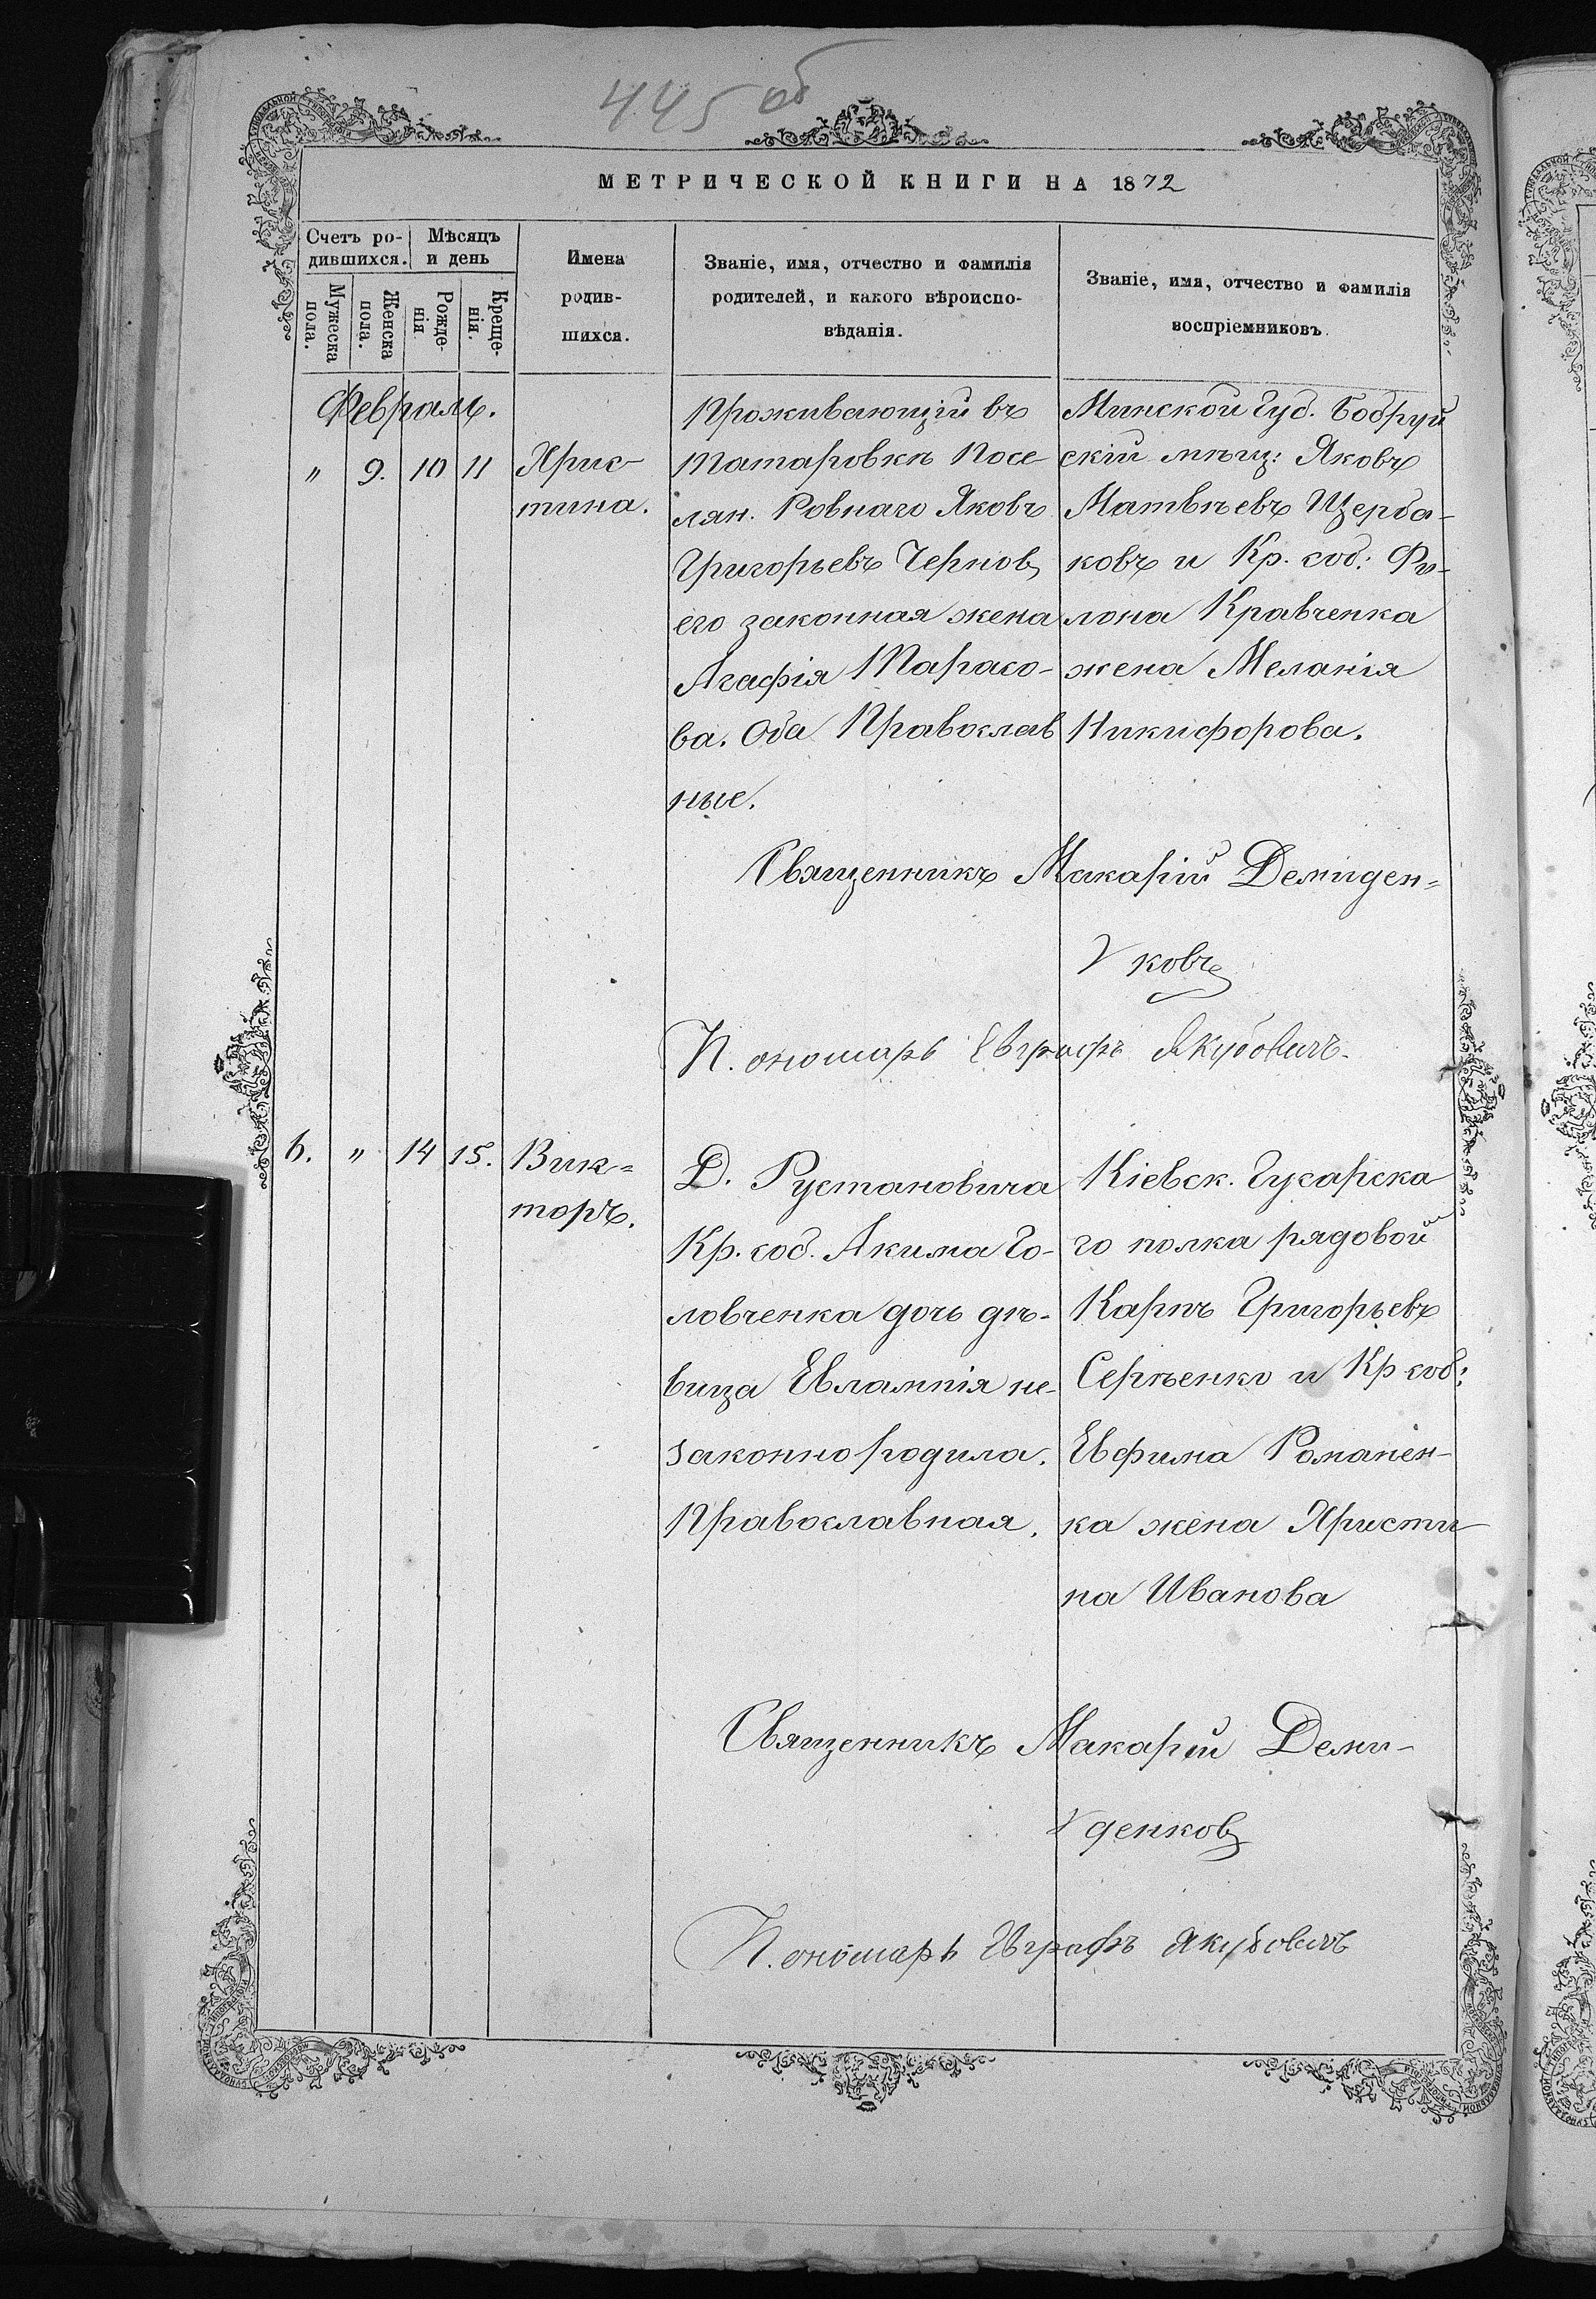 445 об
МЕТРИЧЕСКОЙ КНИГИ НА 1872
Счетъ ро-
дившихся.
Мужеска
пола.
Женска
пола.
Мѣсяцъ
и день
Рожде-
нія
Креще-
нія.
Имена
родив-
шихся.
Званіе, имя, отчество и фамилія
родителей, и какого вѣроиспо-
вѣданія.
Званіе, имя, отчество и фамилія
воспріемниковъ
Февраль.
" 9. 10 11
Хрис-
тина.
Проживающій въ
Татаровкѣ Посе
лян. Ровнаго Яковъ
Григорьевъ Чернов,
его законная жена
Агафія Тарасо-
ва. Оба Православ
ные.
Минской Губ. Бобруй
скій мѣщ: Яковъ
Матвѣевъ Щерба-
ковъ и Кр. соб: Фи-
лона Кравченка
жена Меланія
Никифорова.
Священникъ Макарій Демиден-
ковъ
Пономарь Евграфъ Якубовичъ.
6. " 14 15.
Вик-
торъ.
Д. Рустановича
Кр. соб. Акима Го-
ловченка дочь дѣ-
вица Евлампія не-
законно родила.
Православная.
Кіевск. Гусарска
го полка рядовой
Карпъ Григорьевъ
Сергѣенко и Кр соб:
Евфима Романен-
ка жена Христи
на Иванова
Священникъ Макарій Деми-
денковъ
Пономарь Евграфъ Якубовичъ